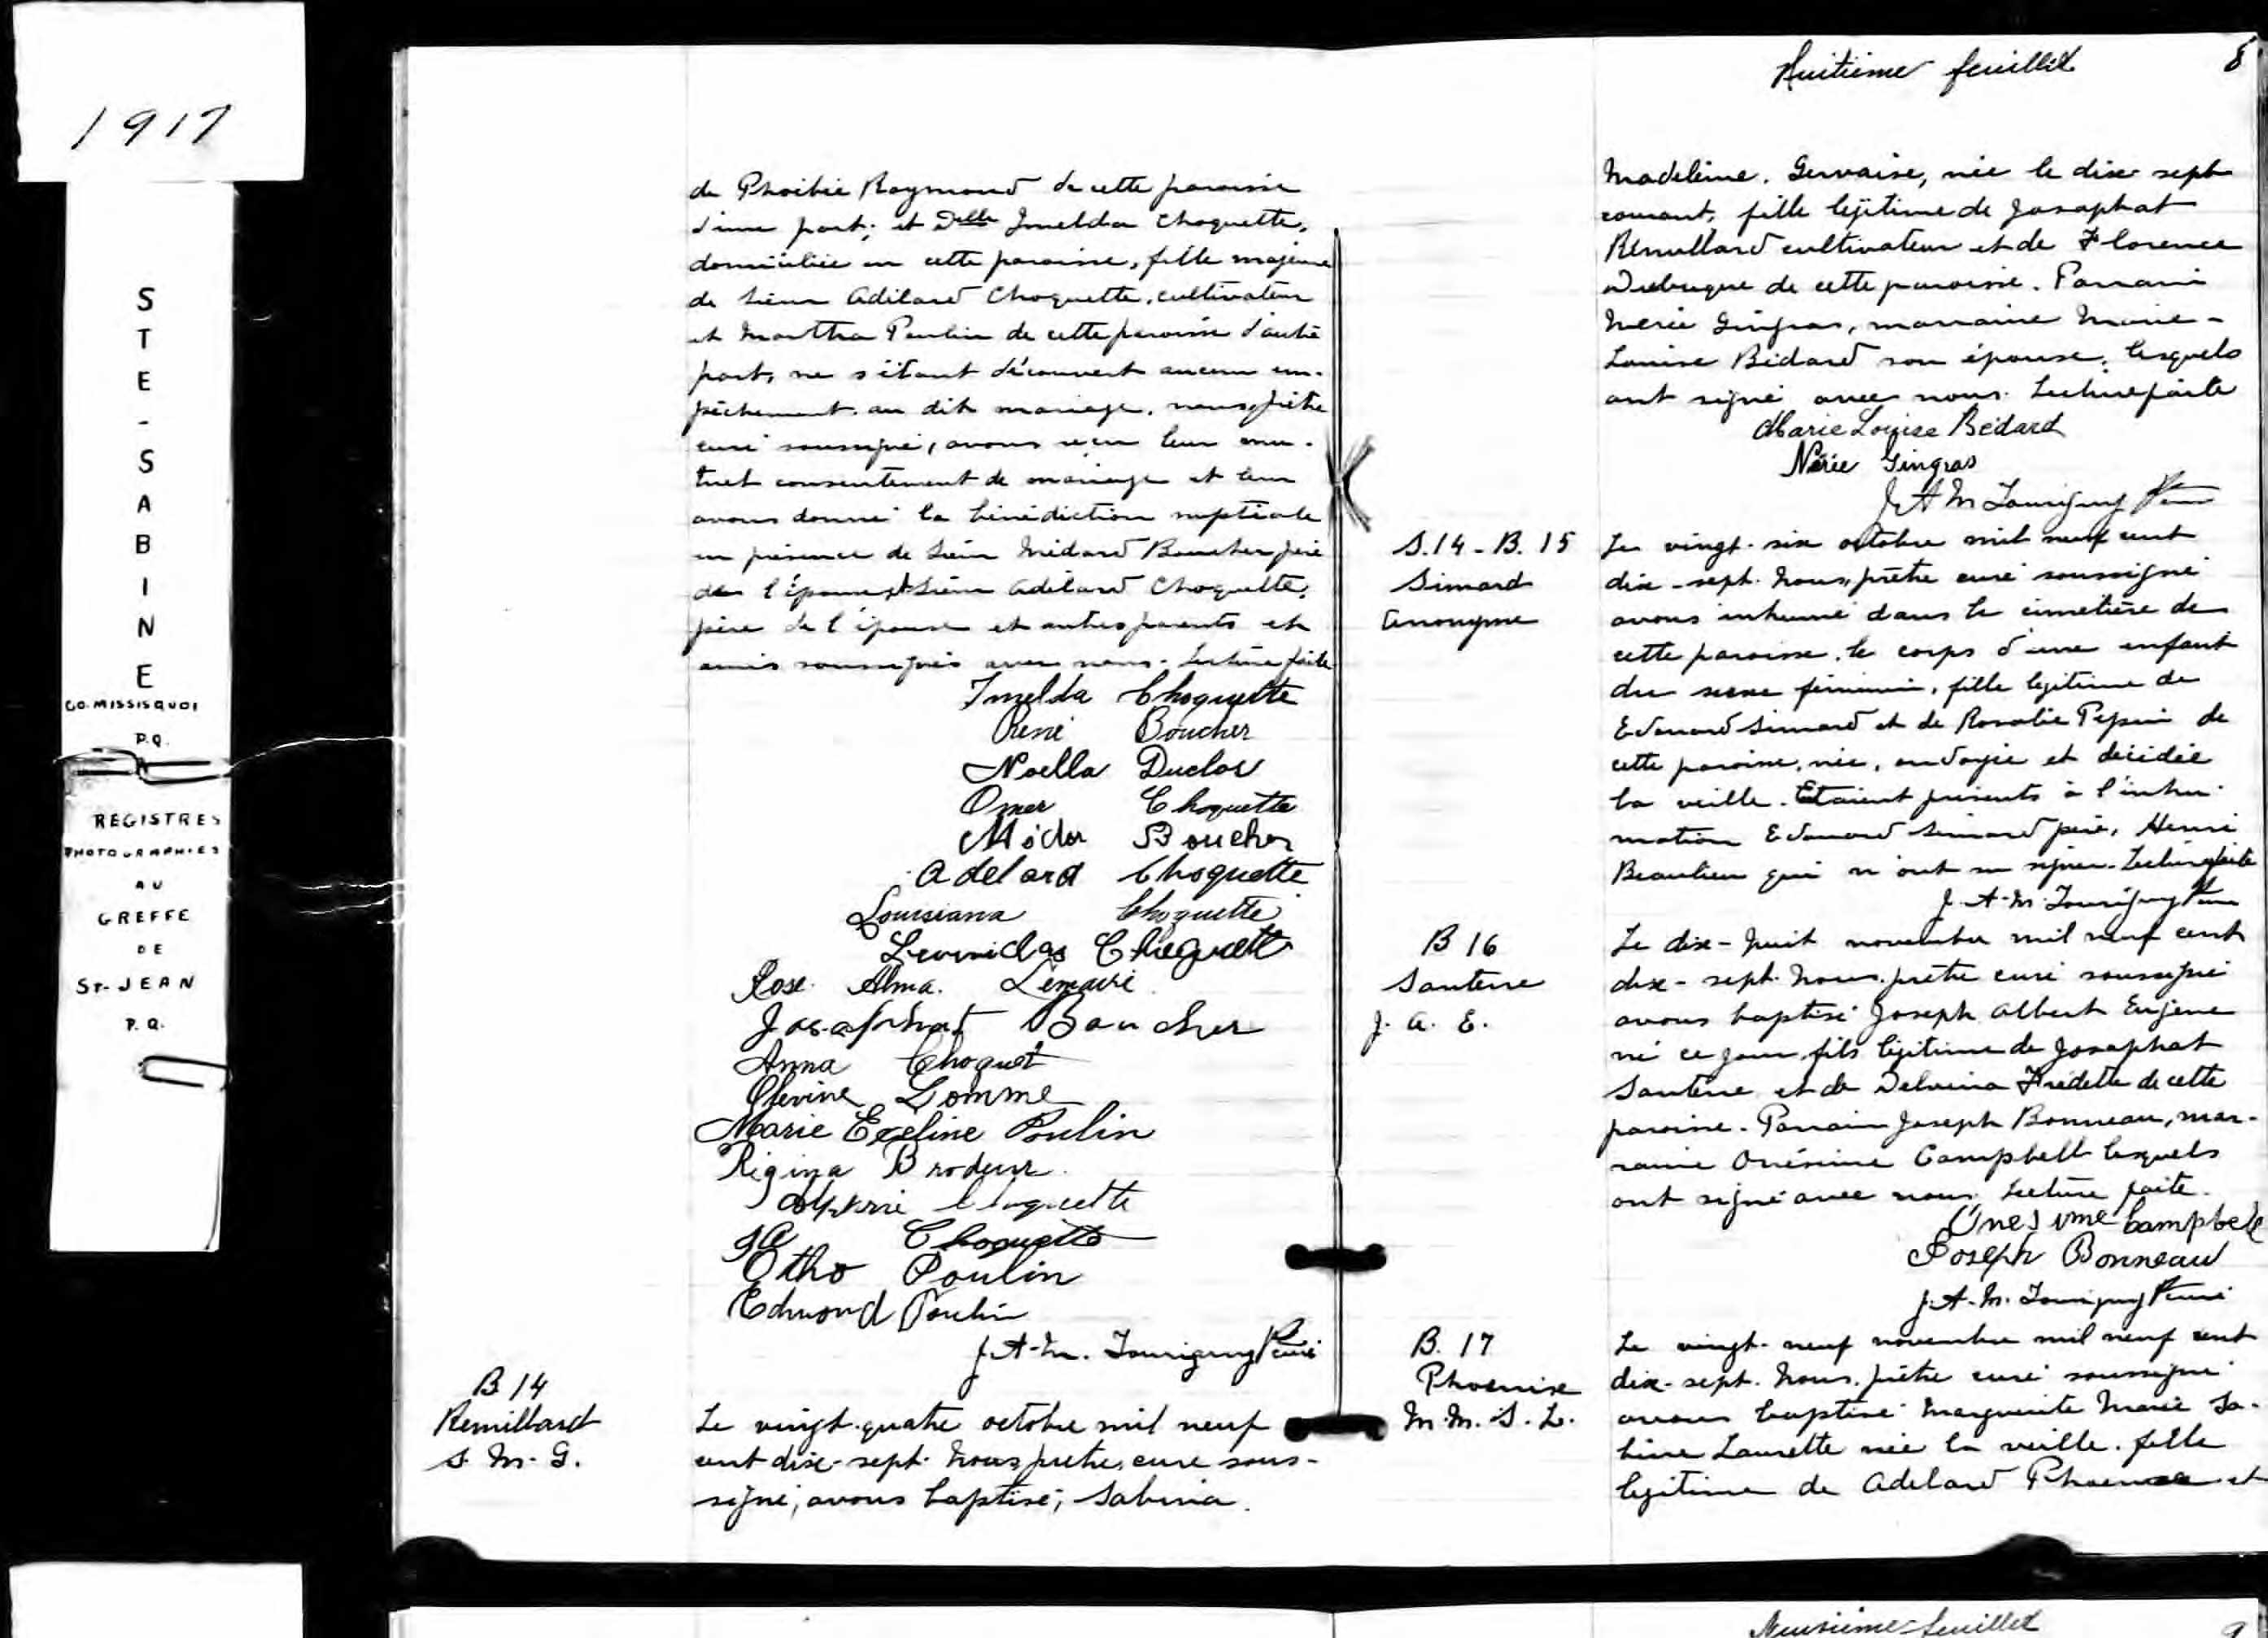 1917
STE-SABINE
CO. MISSISQUOI
P.Q.
REGISTRES
PHOTOGRAPHIES
AU
GREFFE
DE
ST-JEAN
P.Q.
de Phoebie Raymond de cette paroisse
d'une part; et Delle Imelda Choquette,
domiciliée en cette paroisse, fille majeure
de Sieur Adélard Choquette, cultivateur
et Martha Poulin de cette paroisse d'autre
part, ne s'étant découvert aucun em-
pêchement au dit mariage, nous, prêtre
curé soussigné, avons reçu leur mu-
tuel consentement de mariage et leur
avons donné la bénédiction nuptiale
en présence de Sieur Médard Boucher père
de l'époux et Sieur Adélard Choquette,
père de l'épouse et autres parents et
amis soussignés avec nous. Lecture faite
Imelda Choquette
René Boucher
Noella Duclos
Omer Choquette
Boucher
Adelard Choquette
Louisiana Choquette
Choquette
Rose Alma Lemaire
Josaphat Boucher
Anna Choquet
Lomme
Marie Exeline Poulin
Régina Brodeur
Choquette
Otho Poulin
Edmond Poulin
J. A. M. Tourigny Ptre curé
B 14
Remillard
S. M. G.
Le vingt-quatre octobre mil neuf
cent dix-sept. Nous, prêtre, curé sous-
signé, avons baptisé, Sabina
Huitième feuillet
8
Madeleine, Gervaise, née le dix-sept
courant, fille légitime de Josaphat
Rémillard cultivateur et de Florence
Dubuque de cette paroisse. Parrain
Nérée Gingras, marraine Marie-
Louise Bédard son épouse, lesquels
ont signé avec nous. Lecture faite
Marie Louise Bédard
Nérée Gingras
J. A. M. Tourigny Ptre
S. 14 - B. 15
Simard
Anonyme
Le vingt-six octobre mil neuf cent
dix-sept. Nous, prêtre curé soussigné
avons inhumé dans le cimetière de
cette paroisse, le corps d'une enfant
du sexe féminin, fille légitime de
Edouard Simard et de Rosalie Pepin de
cette paroisse, née, ondoyée et décédée
la veille. Etaient présents à l'inhu-
mation Edouard Simard père, Henri
Beaulieu qui n'ont su signer. Lecture faite
J. A. M. Tourigny Ptre
B 16
Santerre
J. A. E.
Le dix-huit novembre mil neuf cent
dix-sept. Nous, prêtre curé soussigné
avons baptisé Joseph Albert Eugène
né ce jour, fils légitime de Josaphat
Santerre et de Delvina Fredette de cette
paroisse. Parrain Joseph Bonneau, mar-
raine Onésime Campbell lesquels
ont signé avec nous. Lecture faite.
Onesime Campbell
Joseph Bonneau
J. A. M. Tourigny Ptre curé
B. 17
Phoenix
M. M. S. L.
Le vingt-neuf novembre mil neuf cent
dix-sept. Nous, prêtre curé soussigné
avons baptisé Marguerite Marie Sa-
bine Laurette née la veille, fille
légitime de Adelard Phoenix et
Neuvième feuillet
9